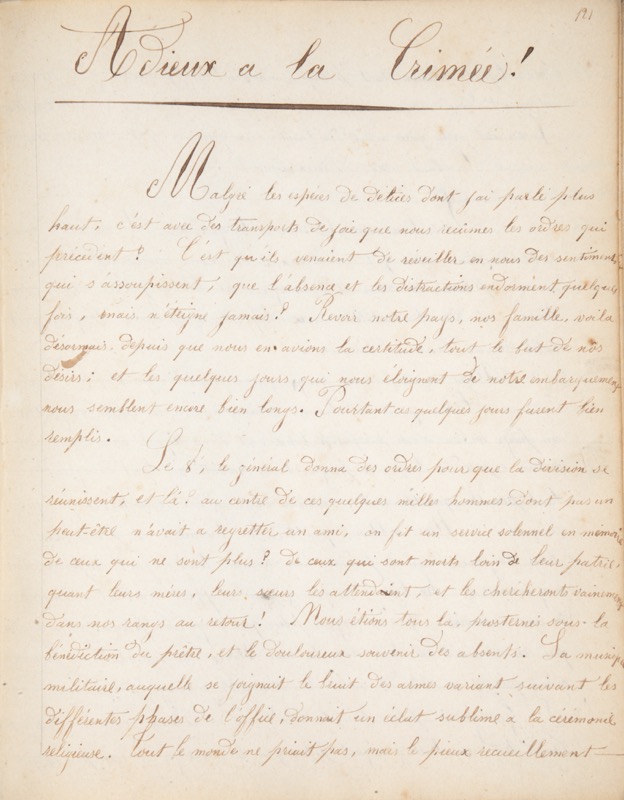 121
Adieux a la Crimée!
Malgré les espèces de délices dont j'ai parlé plus
haut, c'est avec des transports de joie que nous reçûmes les ordres qui
précédent? C'est qu'ils venaient de réveiller en nous des sentiments
qui s'assoupissent, que l'absence et les distractions endorment quelque
fois, mais n'éteigne jamais? Revoir notre pays, nos famille, voila
désormais depuis que nous en avions la certitude, tout le but de nos
désirs; et les quelques jours qui nous éloignent de notre embarquement
nous semblent encore bien longs. Pourtant ces quelques jours furent bien
remplis.
Le 8, le général donna des ordres pour que la division se
réunissent, et là? au centre de ces quelques milles hommes, dont pas un
peut-être n'avait a regretter un ami, on fit un service solennel en mémoire
de ceux qui ne sont plus? de ceux qui sont morts loin de leur patrie,
quant leurs mères, leurs sœurs les attendaient, et les chercheront vainement
dans nos rangs au retour! Nous étions tous là, prosternés sous la
bénédiction du prêtre, et le douloureux souvenir des absents. La musique
militaire, auquelle se joignait le bruit des armes variant suivant les
différentes phases de l'office, donnait un éclat sublime a la cérémonie
religieuse. Tout le monde ne priait pas, mais le pieux recueillement